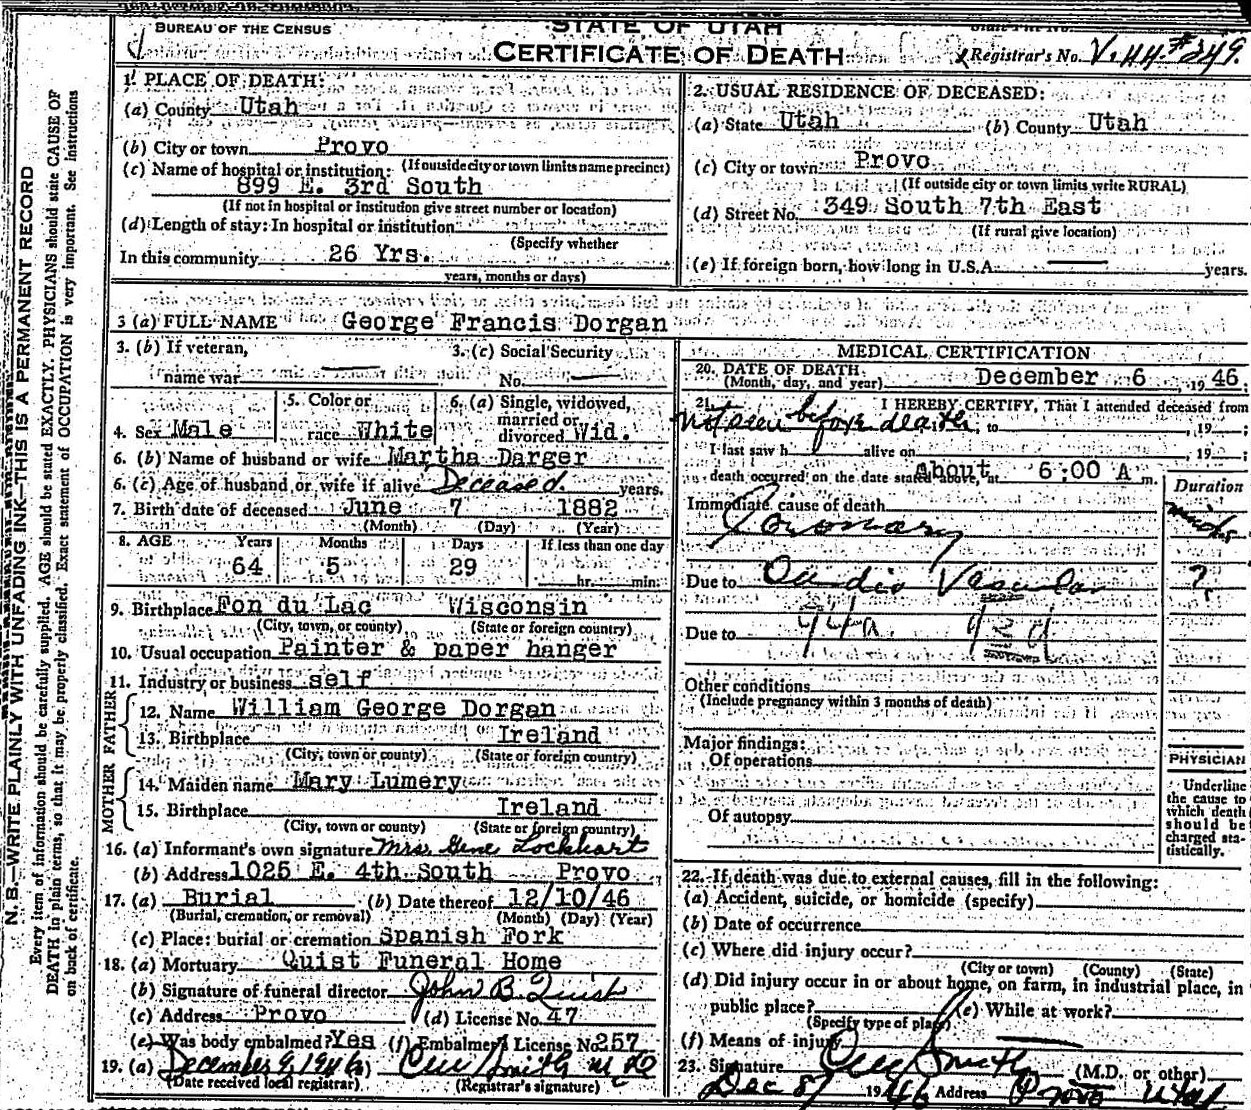 BUREAU OF THE CENSUS
STATE OF UTAH
CERTIFICATE OF DEATH
Registrar's No. V.44-#249.
N. B.—WRITE PLAINLY WITH UNFADING INK—THIS IS A PERMANENT RECORD
Every item of information should be carefully supplied. AGE should be stated EXACTLY. PHYSICIANS should state CAUSE OF
DEATH in plain terms, so that it may be properly classified. Exact statement of OCCUPATION is very important. See instructions
on back of certificate.
1. PLACE OF DEATH:
(a) County Utah
(b) City or town Provo
(c) Name of hospital or institution: (If outside city or town limits name precinct)
899 E. 3rd South
(If not in hospital or institution give street number or location)
(d) Length of stay: In hospital or institution
(Specify whether
In this community 26 Yrs.
years, months or days)
2. USUAL RESIDENCE OF DECEASED:
(a) State Utah (b) County Utah
(c) City or town Provo
(If outside city or town limits write RURAL)
(d) Street No. 349 South 7th East
(If rural give location)
(e) If foreign born, how long in U.S.A. — years.
3 (a) FULL NAME George Francis Dorgan
3. (b) If veteran,
name war —
3. (c) Social Security
No. —
4. Sex Male
5. Color or
race White
6. (a) Single, widowed,
married or
divorced Wid.
6. (b) Name of husband or wife Martha Darger
6. (c) Age of husband or wife if alive Deceased years.
7. Birth date of deceased June 7 1882
(Month) (Day) (Year)
8. AGE Years Months Days If less than one day
64 5 29 hr. min.
9. Birthplace Fon du Lac Wisconsin
(City, town, or county) (State or foreign country)
10. Usual occupation Painter & paper hanger
11. Industry or business self
FATHER
12. Name William George Dorgan
13. Birthplace Ireland
(City, town or county) (State or foreign country)
MOTHER
14. Maiden name Mary Lumery
15. Birthplace Ireland
(City, town or county) (State or foreign country)
16. (a) Informant's own signature Mrs. Gene Lockhart
(b) Address 1025 E. 4th South Provo
17. (a) Burial (b) Date thereof 12/10/46
(Burial, cremation, or removal) (Month) (Day) (Year)
(c) Place: burial or cremation Spanish Fork
18. (a) Mortuary Quist Funeral Home
(b) Signature of funeral director John B. Quist
(c) Address Provo (d) License No. 47
(e) Was body embalmed? Yes (f) Embalmer License No. 257
19. (a) December 9, 1946) Smith M D
(Date received local registrar) (Registrar's signature)
MEDICAL CERTIFICATION
20. DATE OF DEATH
(Month, day, and year) December 6 1946.
21. I HEREBY CERTIFY, That I attended deceased from
not seen before death, to , 19 ;
I last saw h alive on , 19 ;
death occurred on the date stated above, at About 6:00 A m.
Duration
Immediate cause of death
Coronary
Due to Cardio Vascular ?
Due to 94a
Other conditions
(Include pregnancy within 3 months of death)
Major findings:
Of operations
Of autopsy
PHYSICIAN
Underline
the cause to
which death
should be
charged sta-
tistically.
22. If death was due to external causes, fill in the following:
(a) Accident, suicide, or homicide (specify)
(b) Date of occurrence
(c) Where did injury occur?
(City or town) (County) (State)
(d) Did injury occur in or about home, on farm, in industrial place, in
public place? (e) While at work?
(Specify type of place)
(f) Means of injury
23. Signature Smith (M.D. or other)
Dec 8 1946 Address Provo Utah